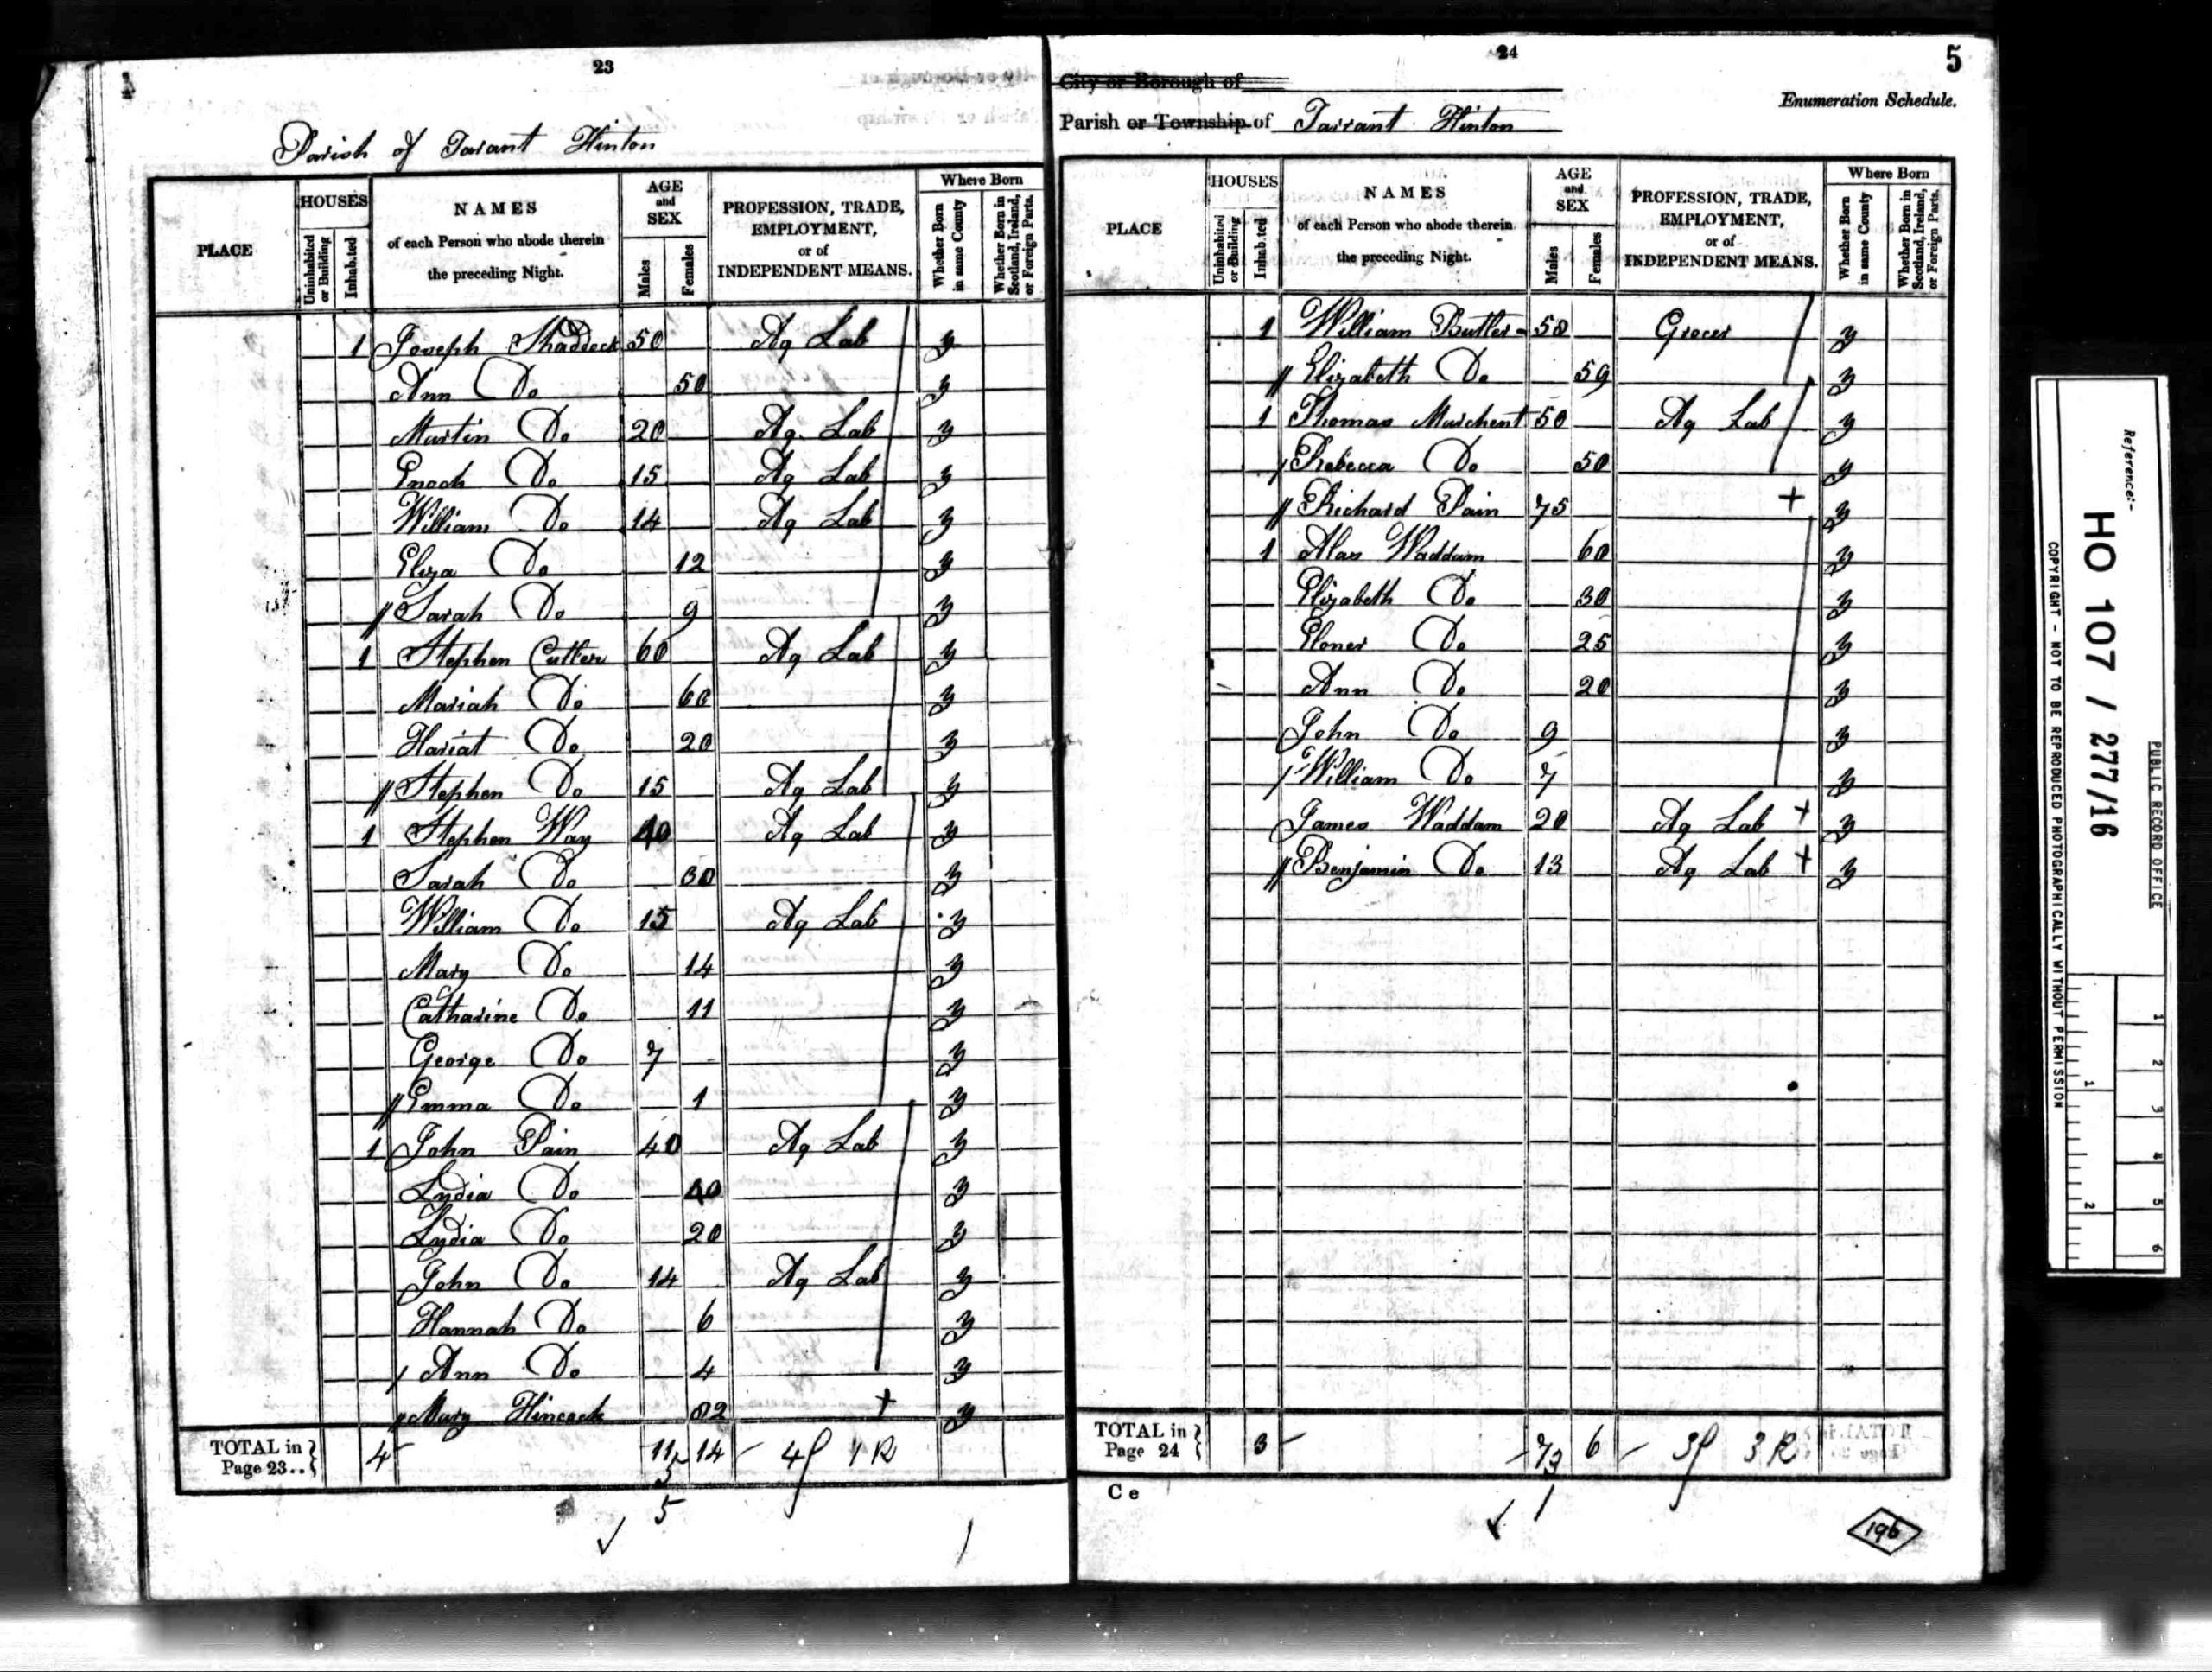 23
Parish of Tarant Hinton
PLACE
HOUSES
Uninhabited or Building
Inhabited
NAMES
of each Person who abode therein
the preceding Night.
AGE
and
SEX
Males
Females
PROFESSION, TRADE,
EMPLOYMENT,
or of
INDEPENDENT MEANS.
Where Born
Whether Born in same County
Whether Born in Scotland, Ireland, or Foreign Parts.
1 Joseph Shaddock 50 Ag Lab y
Ann Do 50 y
Martin Do 20 Ag. Lab y
Enoch Do 15 Ag Lab y
William Do 14 Ag Lab y
Eliza Do 12 y
// Sarah Do 9 y
1 Stephen Cutler 60 Ag Lab y
Mariah Do 60 y
Hariat Do 20 y
// Stephen Do 15 Ag Lab y
1 Stephen Way 40 Ag Lab y
Sarah Do 30 y
William Do 15 Ag Lab y
Mary Do 14 y
Catharine Do 11 y
George Do 7 y
// Emma Do 1 y
1 John Pain 40 Ag Lab y
Lydia Do 40 y
Lydia Do 20 y
John Do 14 Ag Lab y
Hannah Do 6 y
/ Ann Do 4 y
// Mary Hincock 82 + y
TOTAL in Page 23.. 4 11 14
5
24
5
City or Borough of
Enumeration Schedule.
Parish or Township of Tarrant Hinton
PLACE
HOUSES
Uninhabited or Building
Inhabited
NAMES
of each Person who abode therein
the preceding Night.
AGE
and
SEX
Males
Females
PROFESSION, TRADE,
EMPLOYMENT,
or of
INDEPENDENT MEANS.
Where Born
Whether Born in same County
Whether Born in Scotland, Ireland, or Foreign Parts.
1 William Butler 58 Grocer y
// Elizabeth Do 59 y
1 Thomas Marchent 50 Ag Lab y
/ Rebecca Do 50 y
// Richard Pain 75 + y
1 Alas Waddam 60 y
Elizabeth Do 30 y
Eloner Do 25 y
Ann Do 20 y
John Do 9 y
/ William Do 7 y
James Waddam 20 Ag Lab + y
// Benjamin Do 13 Ag Lab + y
TOTAL in Page 24 3 7 6
C e
196
Reference:-
HO 107 / 277/16
PUBLIC RECORD OFFICE
COPYRIGHT - NOT TO BE REPRODUCED PHOTOGRAPHICALLY WITHOUT PERMISSION
1 2 3 4 5 6
1 2